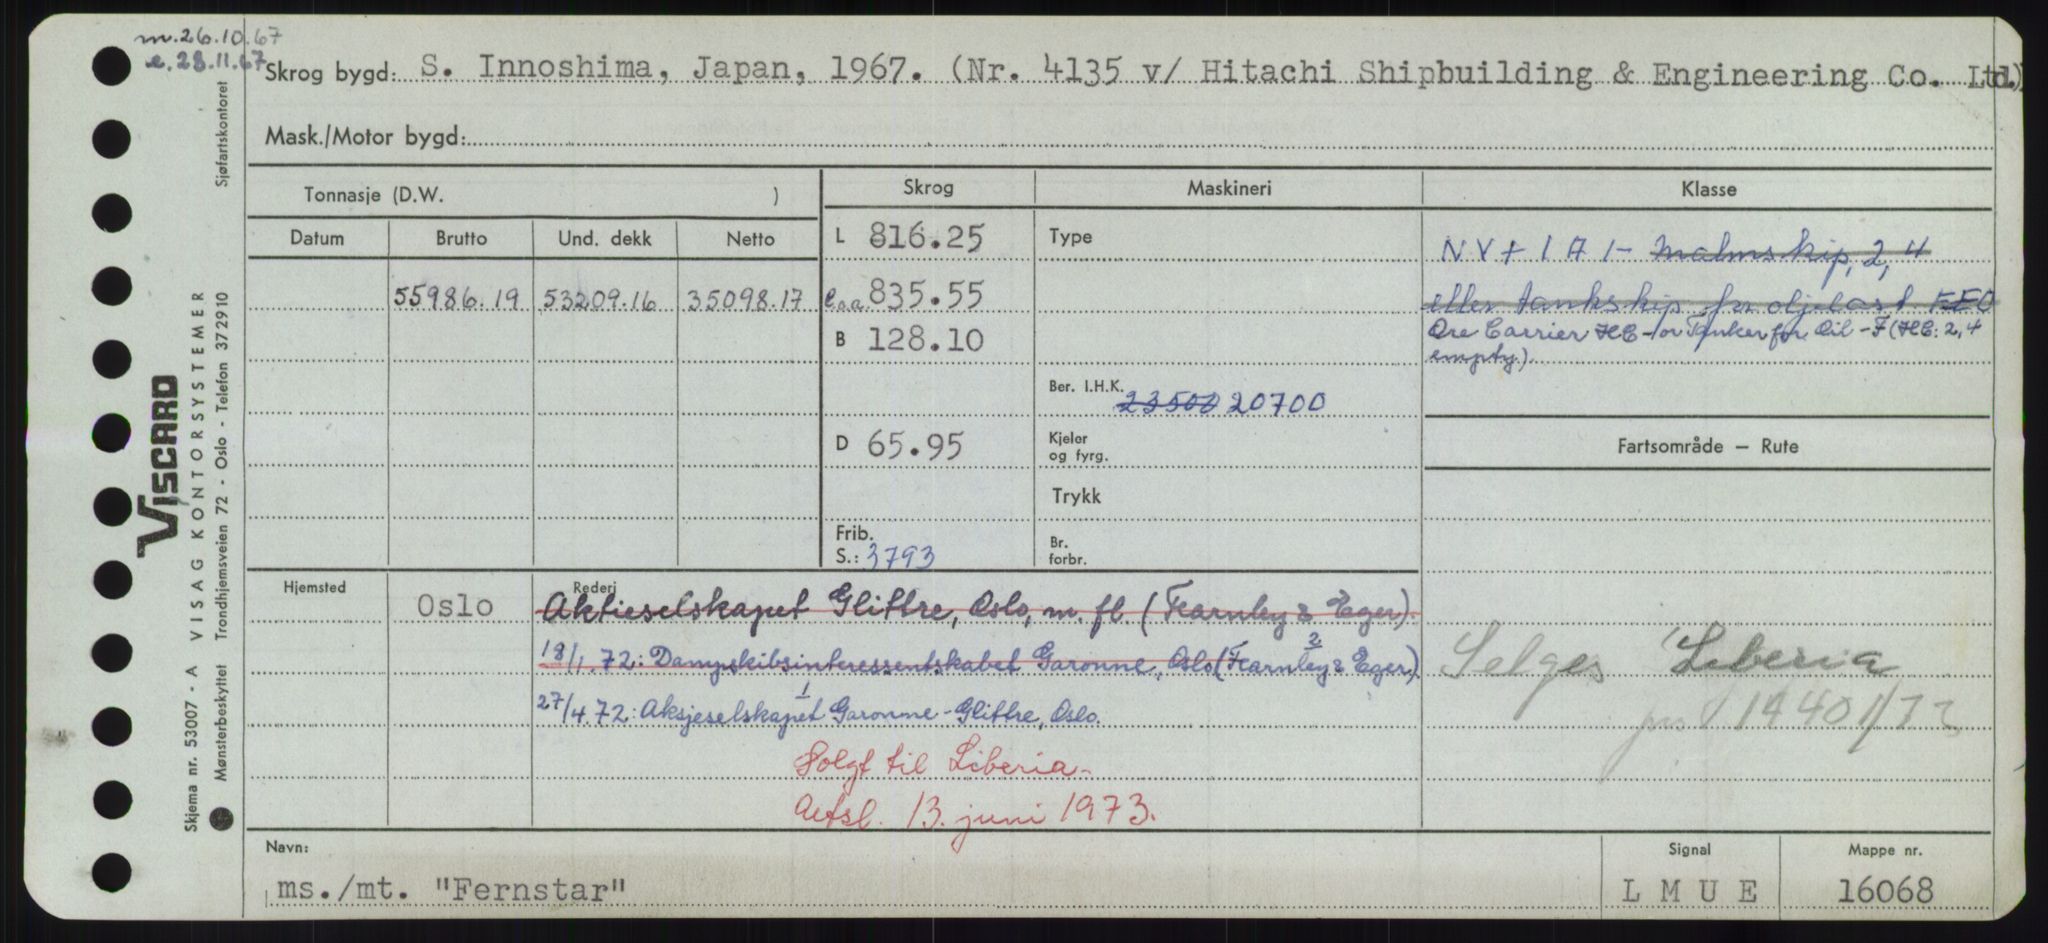 m. 26.10.67
e. 28.11.67
Skrog bygd: S. Innoshima, Japan, 1967. (Nr. 4135 v/ Hitachi Shipbuilding & Engineering Co. Ltd.)
Mask./Motor bygd:
Tonnasje (D.W. )
Skrog Maskineri Klasse
Datum Brutto Und. dekk Netto
L 816.25 Type NV + 1 A 1 - Malmskip, 2, 4
55986.19 53209.16 35098.17 l.o.a. 835.55 eller tankskip for oljelast EEO
Ore Carrier HC - or Tanker for Oil - F (HC: 2, 4
B 128.10 empty.)
Ber. I.H.K. 23500 20700
D 65.95 Kjeler og fyrg. Fartsområde – Rute
Trykk
Frib. S.: 3793 Br. forbr.
Hjemsted Rederi
Oslo Aktieselskapet Glittre, Oslo, m. fl. (Fearnley & Eger).
18/1.72: Dampskibsinteressentskabet Garonne, Oslo (Fearnley & Eger) 2
27/4.72: Aksjeselskapet Garonne-Glittre, Oslo. 1
Selges Liberia
Solgt til Liberia.
Avtsl. 13. juni 1973.
Navn: Signal Mappe nr.
ms./mt. "Fernstar" L M U E 16068
Viscard
VISAG KONTORSYSTEMER
Skjema nr. 53007 - A
Mønsterbeskyttet Trondhjemsveien 72 - Oslo - Telefon 372910 Sjøfartskontoret